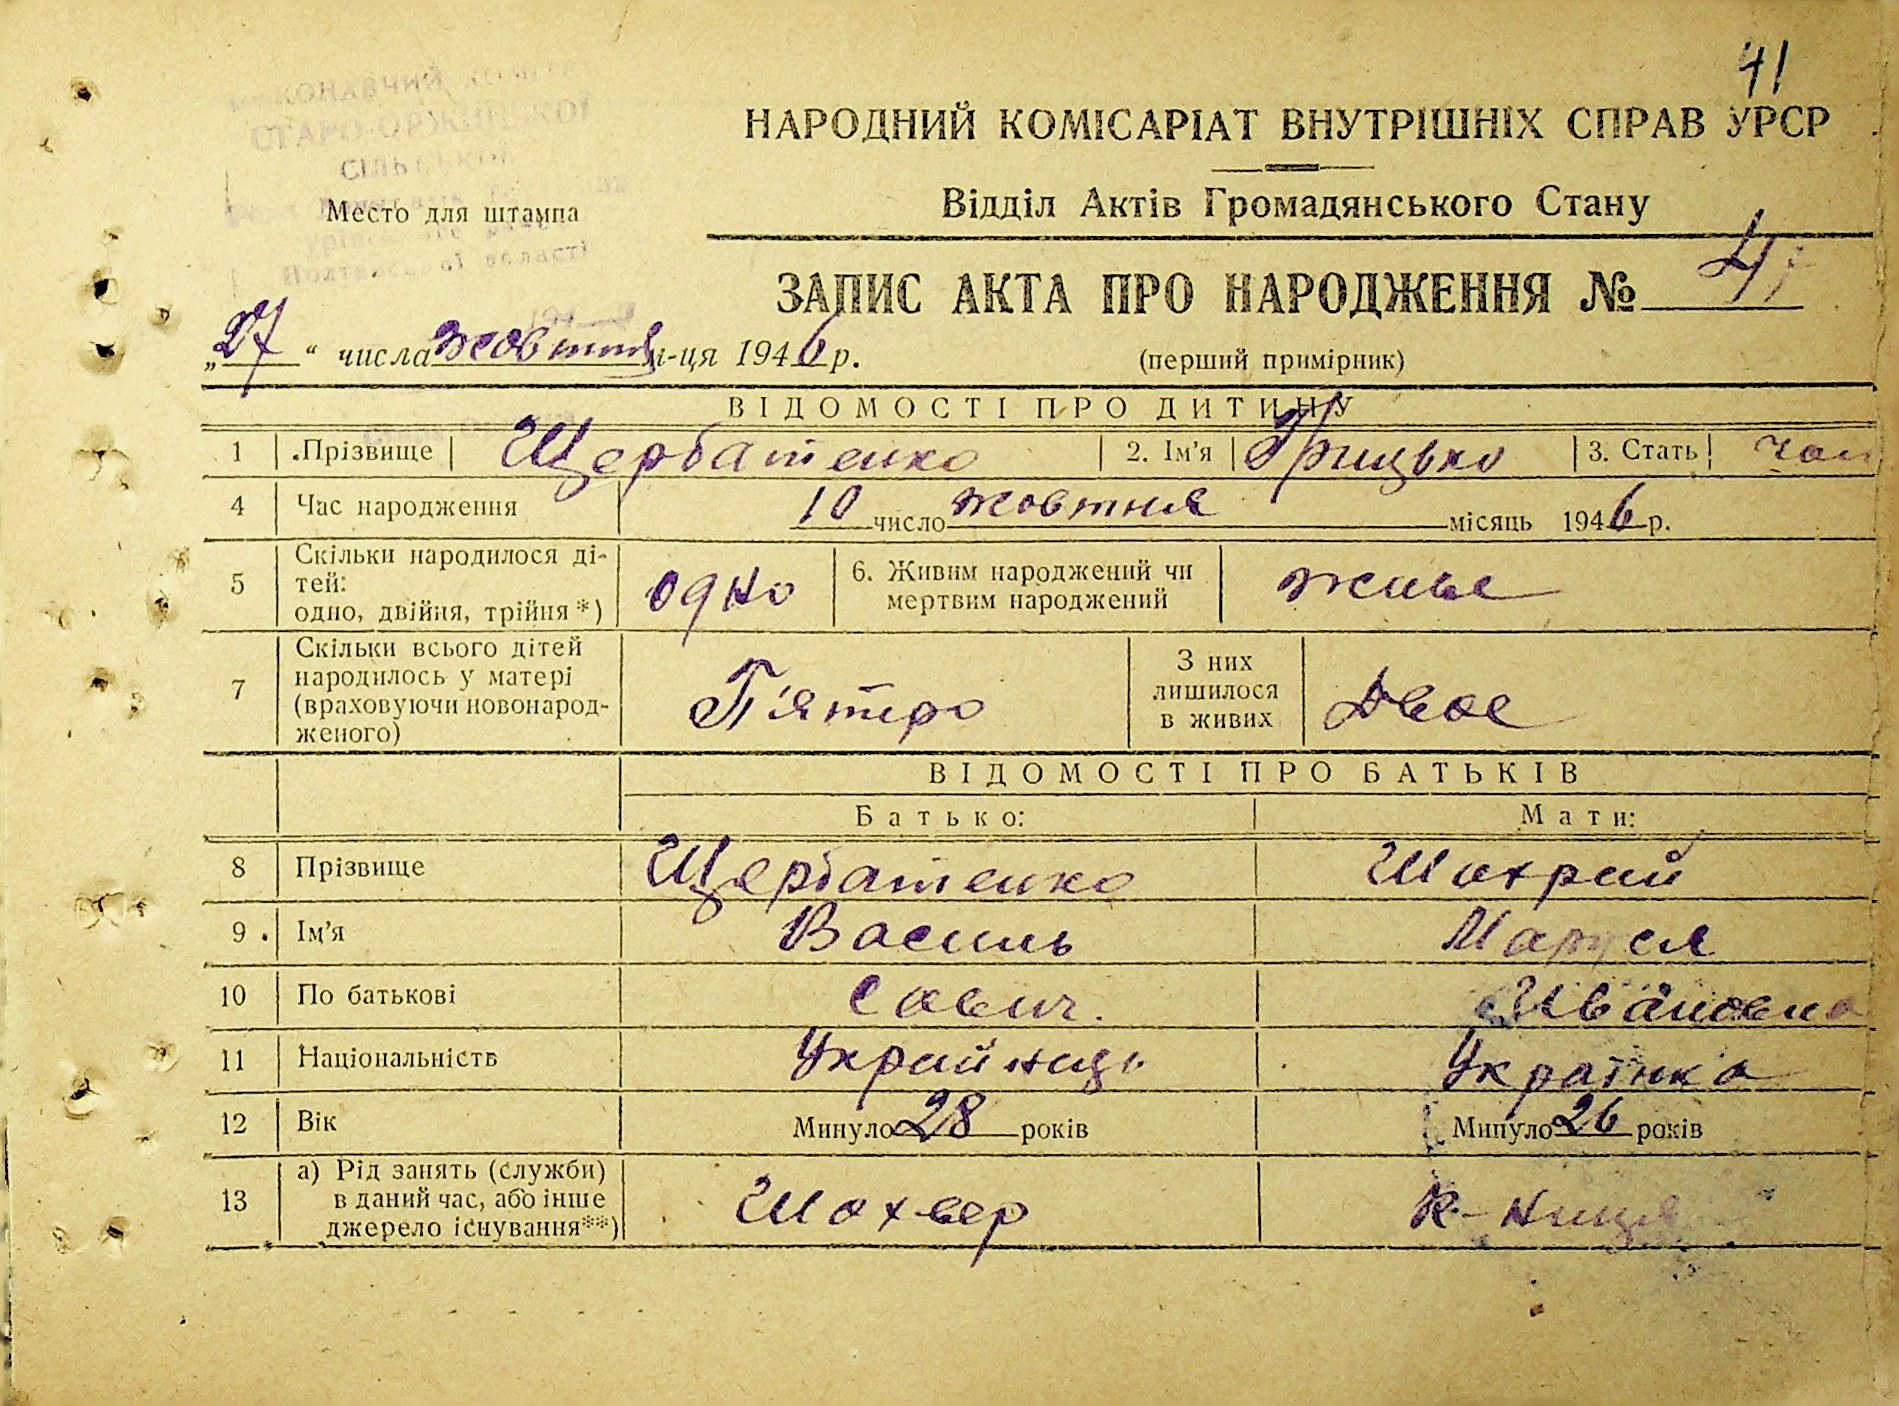 41
НАРОДНИЙ КОМІСАРІАТ ВНУТРІШНІХ СПРАВ УРСР
Відділ Актів Громадянського Стану
СТАРО-ОРЖИЦЬКОЇ
СІЛЬСЬКОЇ
Место для штампа
Полтавської області
ЗАПИС АКТА ПРО НАРОДЖЕННЯ № 41
„27“ числа жовтня м-ця 1946 р.
(перший примірник)
ВІДОМОСТІ ПРО ДИТИНУ
1 Прізвище Щербатенко 2. Ім'я Грицько 3. Стать чол
4 Час народження 10 число жовтня місяць 1946 р.
5 Скільки народилося ді-
тей:
одно, двійня, трійня*) одно 6. Живим народжений чи
мертвим народжений живе
7 Скільки всього дітей
народилось у матері
(враховуючи новонарод-
женого) П'ятеро З них
лишилося
в живих Двое
ВІДОМОСТІ ПРО БАТЬКІВ
Батько: Мати:
8 Прізвище Щербатенко Шахрай
9 Ім'я Василь Маруся
10 По батькові Савич. Ивановна
11 Національність Українець Українка
12 Вік Минуло 28 років Минуло 26 років
13 а) Рід занять (служби)
в даний час, або інше
джерело існування**) Шохвер к-ниця